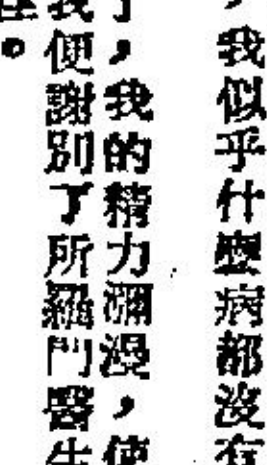 ，我似乎什麼病都沒有
了，我的精力瀰漫，使
我便謝別了所羅門醫生
座。